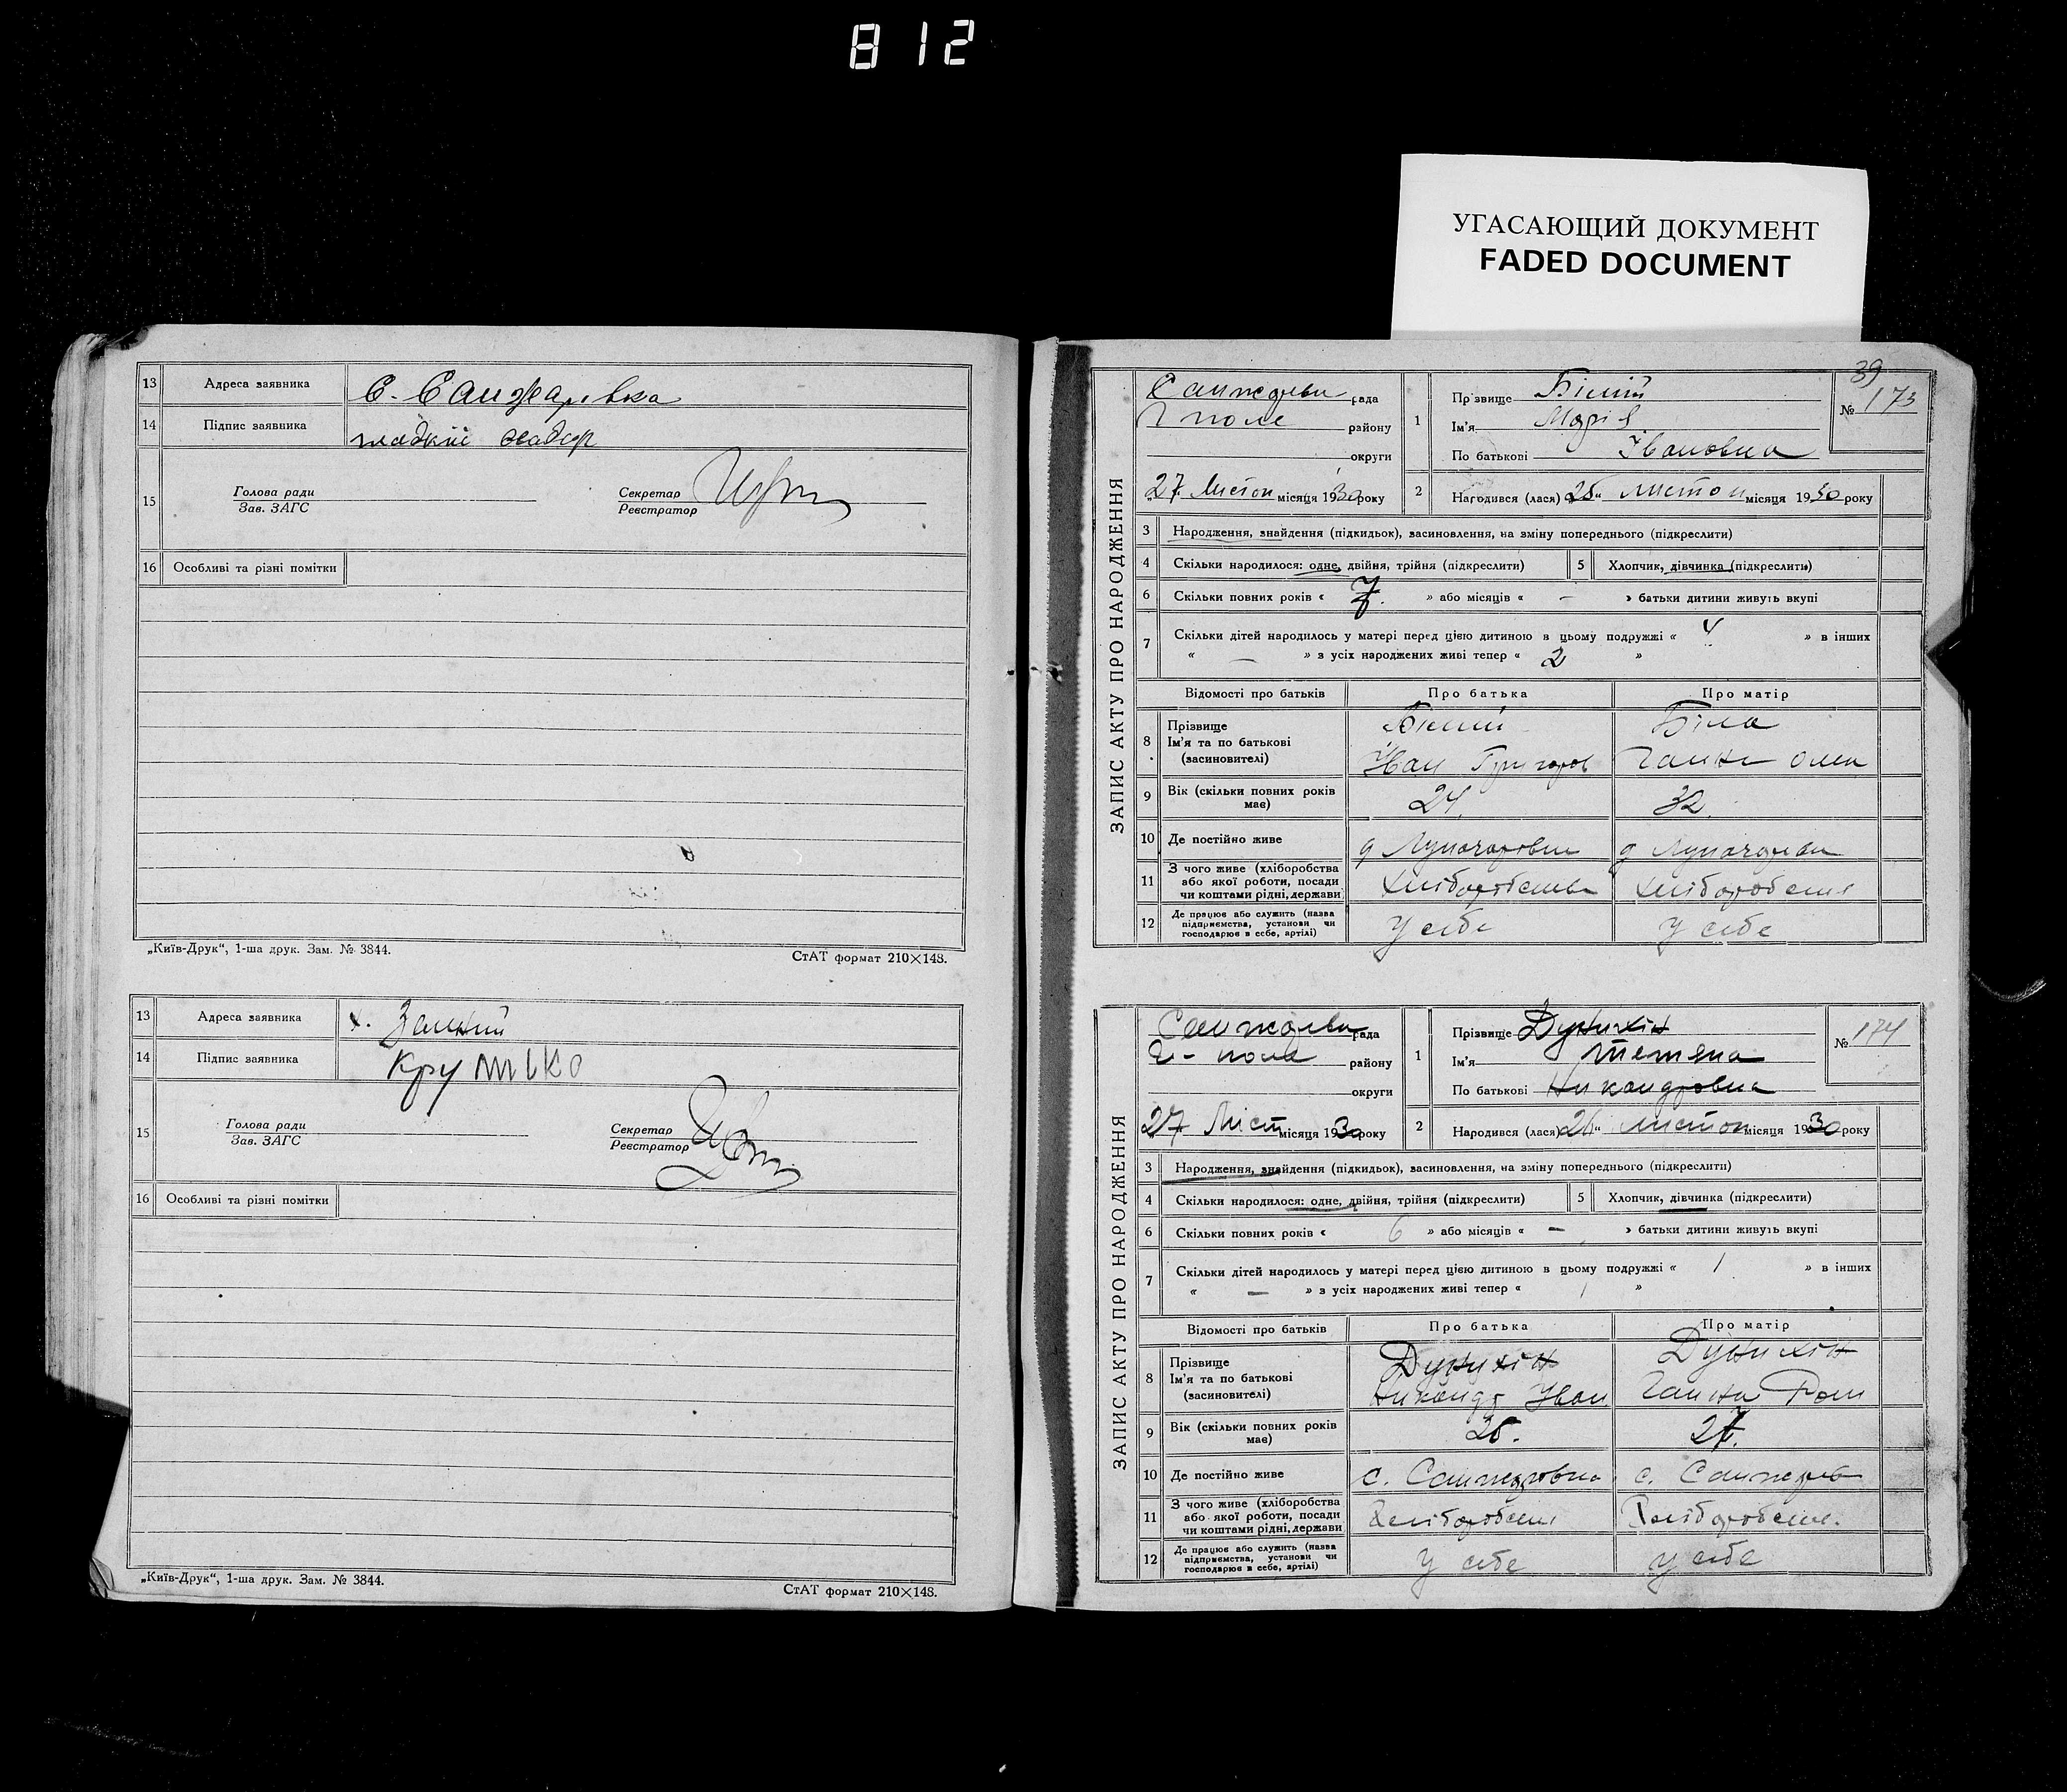 812
УГАСАЮЩИЙ ДОКУМЕНТ
FADED DOCUMENT
13 Адреса заявника С. Санжарівка
14 Підпис заявника гладкій
15 Голова ради
Зав. ЗАГС
Секретар
Реєстратор
16 Особливі та різні помітки
„Київ-Друк“, 1-ша друк. Зам. № 3844.
СтАТ формат 210×148.
13 Адреса заявника х.
14 Підпис заявника Крутько
15 Голова ради
Зав. ЗАГС
Секретар
Реєстратор
16 Особливі та різні помітки
„Київ-Друк“, 1-ша друк. Зам. № 3844.
СтАТ формат 210×148.
39
ЗАПИС АКТУ ПРО НАРОДЖЕННЯ
рада
Г поле району
округи
27 Листоп місяця 1930 року
1 Прізвище Білий
Ім'я Марія
По батькові Івановна
№ 173
2 Народився (лася) „25“ листоп місяця 1930 року
3 Народження, знайдення (підкидьок), засиновлення, на зміну попереднього (підкреслити)
4 Скільки народилося: одне, двійня, трійня (підкреслити)
5 Хлопчик, дівчинка (підкреслити)
6 Скільки повних років « 7. » або місяців « – » батьки дитини живуть вкупі
7 Скільки дітей народилось у матері перед цією дитиною в цьому подружжі « 4 » в інших
« — » з усіх народжених живі тепер « 2 »
Відомості про батьків Про батька Про матір
8 Прізвище Білий Біла
Ім'я та по батькові
(засиновителі) Іван Григоров Ганна Олек
9 Вік (скільки повних років має) 24. 32.
10 Де постійно живе
11 З чого живе (хліборобства
або якої роботи, посади
чи коштами рідні, держави хліборобства хліборобств
12 Де працює або служить (назва
підприємства, установи чи
господарює в себе, артілі) у себе у себе
ЗАПИС АКТУ ПРО НАРОДЖЕННЯ
рада
Г- поле району
округи
27 Ліст місяця 1930 року
1 Прізвище Дунихін
Ім'я Тетяна
По батькові Никандровна
№ 174
2 Народився (лася) 26“ листоп місяця 1930 року
3 Народження, знайдення (підкидьок), засиновлення, на зміну попереднього (підкреслити)
4 Скільки народилося: одне, двійня, трійня (підкреслити)
5 Хлопчик, дівчинка (підкреслити)
6 Скільки повних років « 6 » або місяців « – » батьки дитини живуть вкупі
7 Скільки дітей народилось у матері перед цією дитиною в цьому подружжі « 1 » в інших
« — » з усіх народжених живі тепер « 1 »
Відомості про батьків Про батька Про матір
8 Прізвище Дунихін Дунихін
Ім'я та по батькові
(засиновителі) Никандр Іван Ганна Ром
9 Вік (скільки повних років має) 26. 27.
10 Де постійно живе с. Санжаровка с. Санжарів
11 З чого живе (хліборобства
або якої роботи, посади
чи коштами рідні, держави Хліборобств Хліборобств.
12 Де працює або служить (назва
підприємства, установи чи
господарює в себе, артілі) у себе у себе